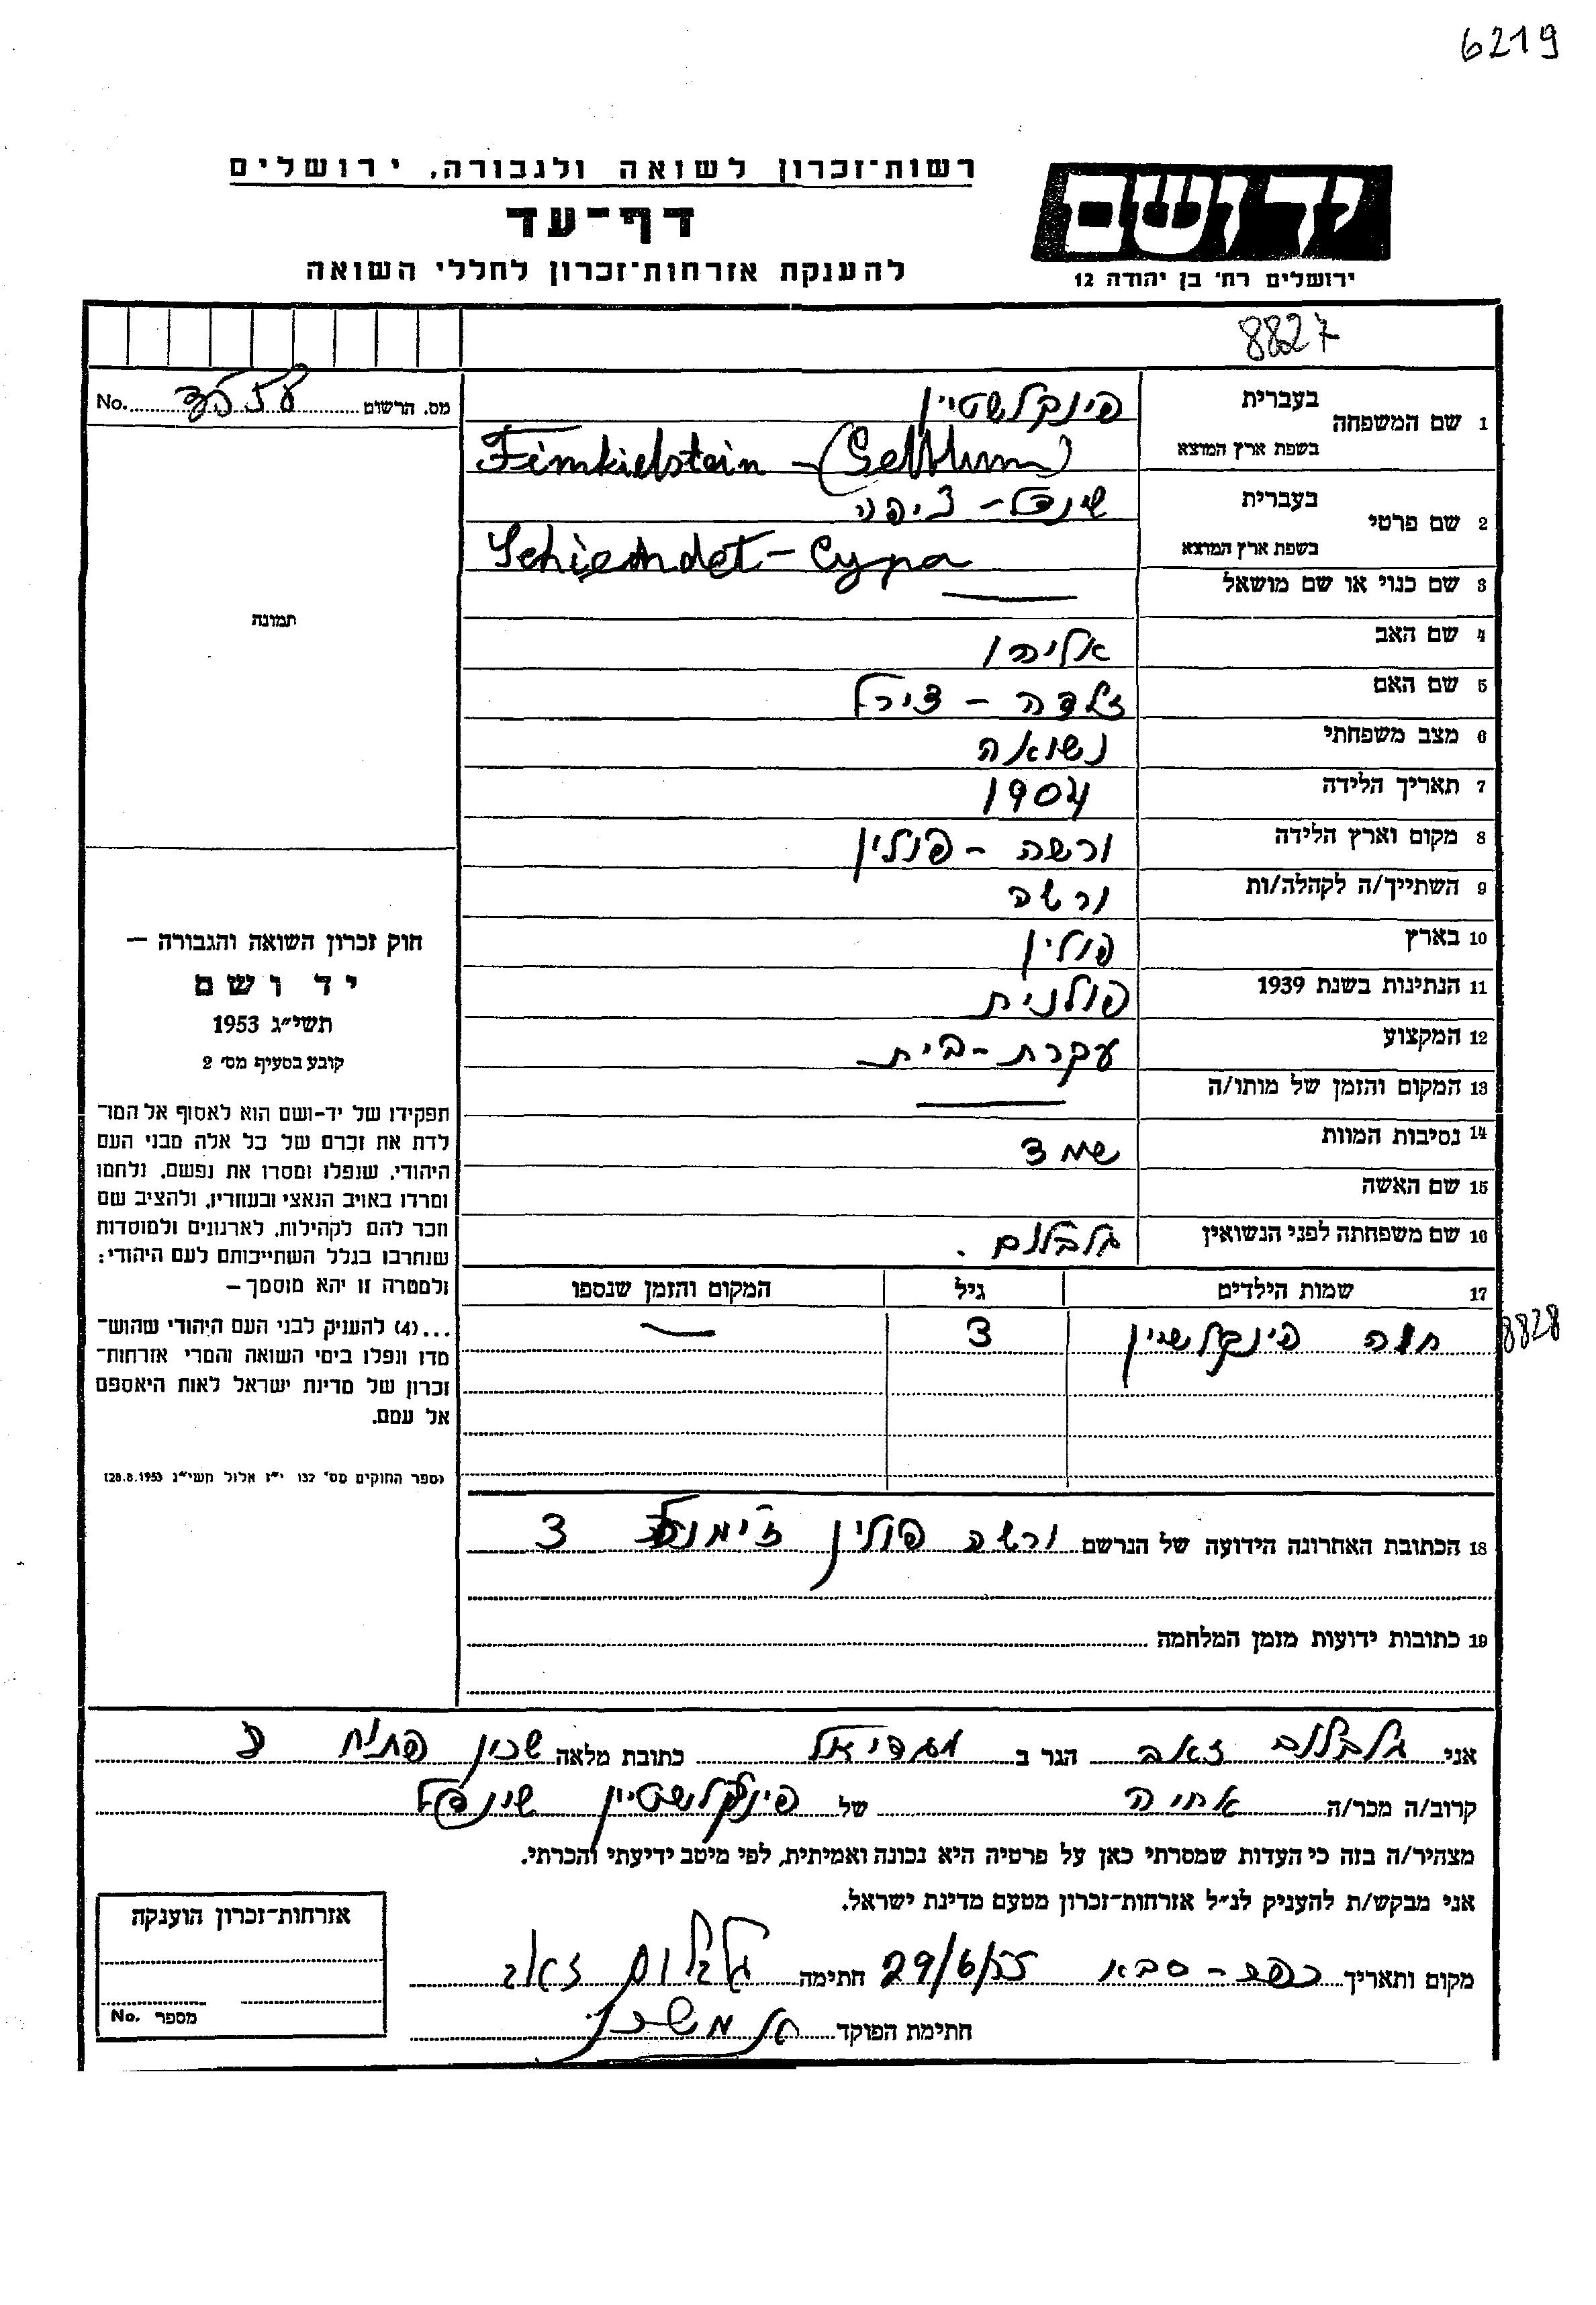 6219
רשות־זכרון לשואה ולגבורה, ירושלים
דף־עד
להענקת אזרחות־זכרון לחללי השואה
יד ושם
ירושלים רח' בן יהודה 12
8827
No. מס. הרשום
1 שם המשפחה
בעברית פינקלשטיין
בשפת ארץ המוצא Finkielstein - (Gelblum)
2 שם פרטי
בעברית שינדל - ציפה
בשפת ארץ המוצא Schiendel - Cypa
3 שם כנוי או שם מושאל —
4 שם האב אליהו
5 שם האם זלדה - צירל
6 מצב משפחתי נשואה
7 תאריך הלידה 1904
8 מקום וארץ הלידה ורשה - פולין
9 השתייך/ה לקהלה/ות ורשה
10 בארץ פולין
11 הנתינות בשנת 1939 פולנית
12 המקצוע עקרת-בית
13 המקום והזמן של מותו/ה —
14 נסיבות המוות
15 שם האשה
16 שם משפחתה לפני הנשואין גלבלום.
17 שמות הילדים גיל המקום והזמן שנספו
חוה פינקלשטיין 3 — 8828
18 הכתובת האחרונה הידועה של הנרשם ורשה פולין 3
19 כתובות ידועות מזמן המלחמה
תמונה
חוק זכרון השואה והגבורה —
יד ושם
תשי״ג 1953
קובע בסעיף מס׳ 2
תפקידו של יד-ושם הוא לאסוף אל המו־
לדת את זכרם של כל אלה מבני העם
היהודי, שנפלו ומסרו את נפשם, נלחמו
ומרדו באויב הנאצי ובעוזריו, ולהציב שם
וזכר להם לקהילות, לארגונים ולמוסדות
שנחרבו בגלל השתייכותם לעם היהודי;
ולמטרה זו יהא מוסמך –
...(4) להעניק לבני העם היהודי שהוש־
מדו ונפלו בימי השואה והמרי אזרחות־
זכרון של מדינת ישראל לאות היאספם
אל עמם.
(ספר החוקים מס׳ 132 י״ז אלול תשי״ג 28.8.1953)
אני גלבלום זאב הגר ב מגדיאל כתובת מלאה שכון פתוח
קרוב/ה מכר/ה אחיה של פינקלשטיין שינדל
מצהיר/ה בזה כי העדות שמסרתי כאן על פרטיה היא נכונה ואמיתית, לפי מיטב ידיעתי והכרתי.
אני מבקש/ת להעניק לנ״ל אזרחות־זכרון מטעם מדינת ישראל.
מקום ותאריך כפר-סבא 29/6/55 חתימה גלבלום זאב
חתימת הפוקד
אזרחות־זכרון הוענקה
מספר No.